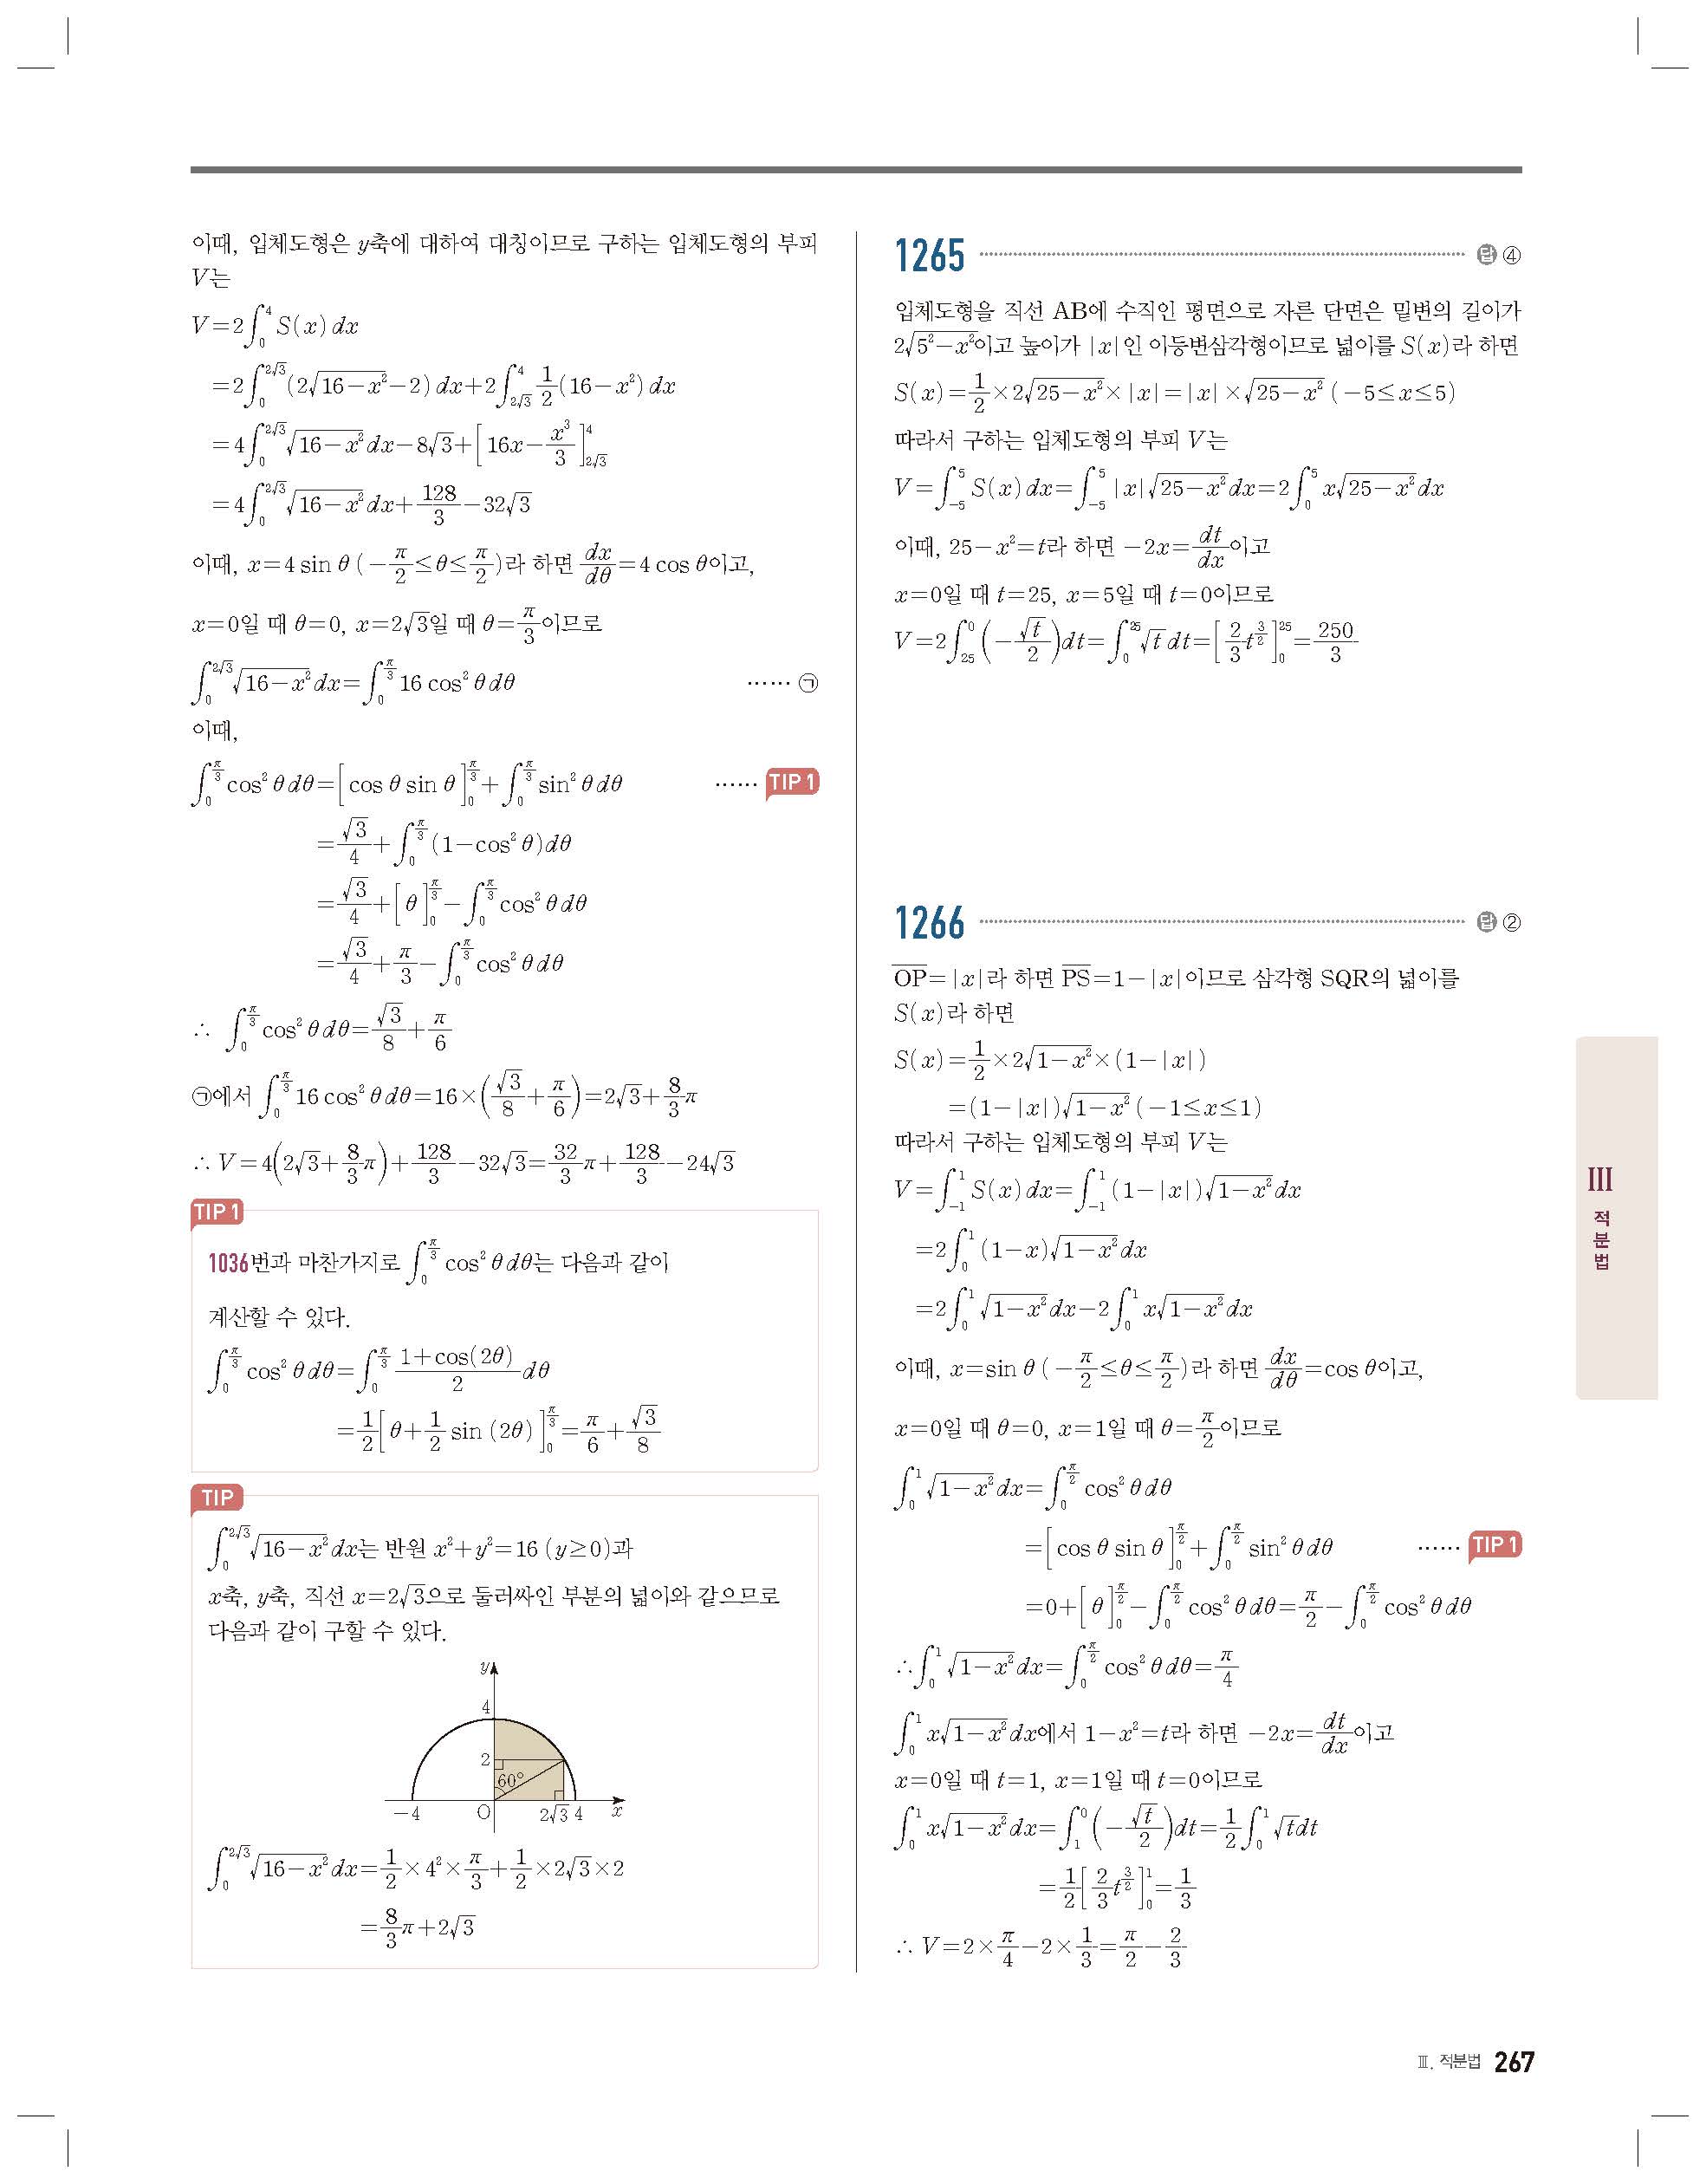 이때, 입체도형은 y축에 대하여 대칭이므로 구하는 입체도형의 부피
V는
V=2∫₀⁴ S(x)dx
=2∫₀^{2√3}(2√(16−x²)−2)dx+2∫_{2√3}^{4} 1/2(16−x²)dx
=4∫₀^{2√3}√(16−x²)dx−8√3+[16x−x³/3]_{2√3}^{4}
=4∫₀^{2√3}√(16−x²)dx+128/3−32√3
이때, x=4 sin θ (−π/2≤θ≤π/2)라 하면 dx/dθ=4 cos θ이고,
x=0일 때 θ=0, x=2√3일 때 θ=π/3이므로
∫₀^{2√3}√(16−x²)dx=∫₀^{π/3}16 cos² θdθ …… ㉠
이때,
∫₀^{π/3}cos² θdθ=[cos θ sin θ]₀^{π/3}+∫₀^{π/3}sin² θdθ …… TIP 1
=√3/4+∫₀^{π/3}(1−cos² θ)dθ
=√3/4+[θ]₀^{π/3}−∫₀^{π/3}cos² θdθ
=√3/4+π/3−∫₀^{π/3}cos² θdθ
∴ ∫₀^{π/3}cos² θdθ=√3/8+π/6
㉠에서 ∫₀^{π/3}16 cos² θdθ=16×(√3/8+π/6)=2√3+8/3π
∴ V=4(2√3+8/3π)+128/3−32√3=32/3π+128/3−24√3
TIP 1
1036번과 마찬가지로 ∫₀^{π/3} cos² θdθ는 다음과 같이
계산할 수 있다.
∫₀^{π/3} cos² θdθ=∫₀^{π/3} (1+cos(2θ))/2 dθ
=1/2[θ+1/2 sin (2θ)]₀^{π/3}=π/6+√3/8
TIP
∫₀^{2√3}√(16−x²)dx는 반원 x²+y²=16 (y≥0)과
x축, y축, 직선 x=2√3으로 둘러싸인 부분의 넓이와 같으므로
다음과 같이 구할 수 있다.
y
4
2
60°
−4 O 2√3 4 x
∫₀^{2√3}√(16−x²)dx=1/2×4²×π/3+1/2×2√3×2
=8/3π+2√3
1265 답 ④
입체도형을 직선 AB에 수직인 평면으로 자른 단면은 밑변의 길이가
2√(5²−x²)이고 높이가 |x|인 이등변삼각형이므로 넓이를 S(x)라 하면
S(x)=1/2×2√(25−x²)×|x|=|x|×√(25−x²) (−5≤x≤5)
따라서 구하는 입체도형의 부피 V는
V=∫_{−5}^{5} S(x)dx=∫_{−5}^{5} |x|√(25−x²)dx=2∫₀⁵ x√(25−x²)dx
이때, 25−x²=t라 하면 −2x=dt/dx이고
x=0일 때 t=25, x=5일 때 t=0이므로
V=2∫_{25}^{0}(−√t/2)dt=∫₀^{25}√t dt=[2/3 t^{3/2}]₀^{25}=250/3
1266 답 ②
O̅P̅=|x|라 하면 P̅S̅=1−|x|이므로 삼각형 SQR의 넓이를
S(x)라 하면
S(x)=1/2×2√(1−x²)×(1−|x|)
=(1−|x|)√(1−x²) (−1≤x≤1)
따라서 구하는 입체도형의 부피 V는
V=∫_{−1}^{1} S(x)dx=∫_{−1}^{1} (1−|x|)√(1−x²)dx
=2∫₀¹ (1−x)√(1−x²)dx
=2∫₀¹ √(1−x²)dx−2∫₀¹ x√(1−x²)dx
이때, x=sin θ (−π/2≤θ≤π/2)라 하면 dx/dθ=cos θ이고,
x=0일 때 θ=0, x=1일 때 θ=π/2이므로
∫₀¹ √(1−x²)dx=∫₀^{π/2} cos² θdθ
=[cos θ sin θ]₀^{π/2}+∫₀^{π/2} sin² θdθ …… TIP 1
=0+[θ]₀^{π/2}−∫₀^{π/2} cos² θdθ=π/2−∫₀^{π/2} cos² θdθ
∴∫₀¹ √(1−x²)dx=∫₀^{π/2} cos² θdθ=π/4
∫₀¹ x√(1−x²)dx에서 1−x²=t라 하면 −2x=dt/dx이고
x=0일 때 t=1, x=1일 때 t=0이므로
∫₀¹ x√(1−x²)dx=∫₁⁰ (−√t/2)dt=1/2∫₀¹ √tdt
=1/2[2/3 t^{3/2}]₀¹=1/3
∴ V=2×π/4−2×1/3=π/2−2/3
Ⅲ
적
분
법
Ⅲ. 적분법 267